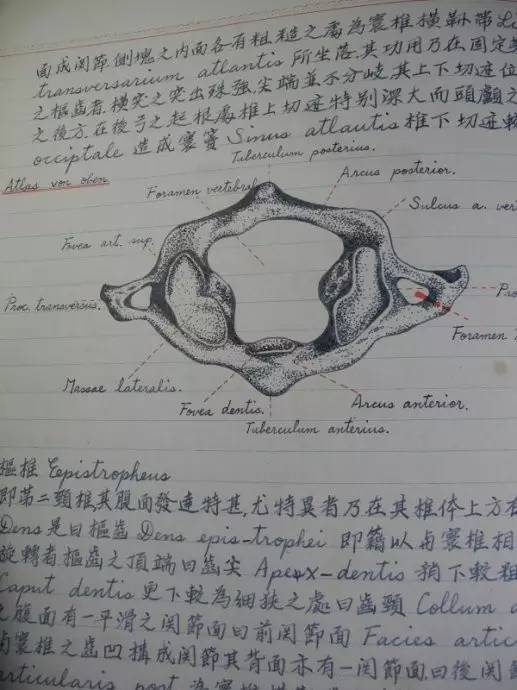 面成関節.側塊之内面各有粗糙之處為寰椎横靭帶
transversarium atlantis 所坐落.其功用乃在固定
之樞齒者.横突之突出殊強尖端並不分岐.其上下切迹位
之後方.在後弓之起根處椎上切迹特别深大而頭顱之
occiptale 造成寰竇 Sinus atlautis 椎下切迹較
Tuberculum posterius.
Atlas von oben
Foramen vertebral
Arcus posterior.
Sulcus a. ver
Fovea art. sup.
Proc. transversus.
Pro
Foramen
Massae lateralis.
Fovea dentis.
Arcus anterior.
Tuberculum anterius.
樞椎 Eepistropheus
即第二頸椎其腹面發達特甚,尤特異者乃在其椎体上方有
Dens是曰樞齒 Dens epis-trophei 即籍以与寰椎相
旋轉者樞齒之頂端曰齒尖 Apex-dentis 稍下較粗
Caput dentis 更下較為細狭之處曰齒頸 Collum
之腹面有一平滑之関節面曰前関節面 Facies artic
与寰椎之齒凹構成関節其背面亦有一関節面曰後関節
articularis post